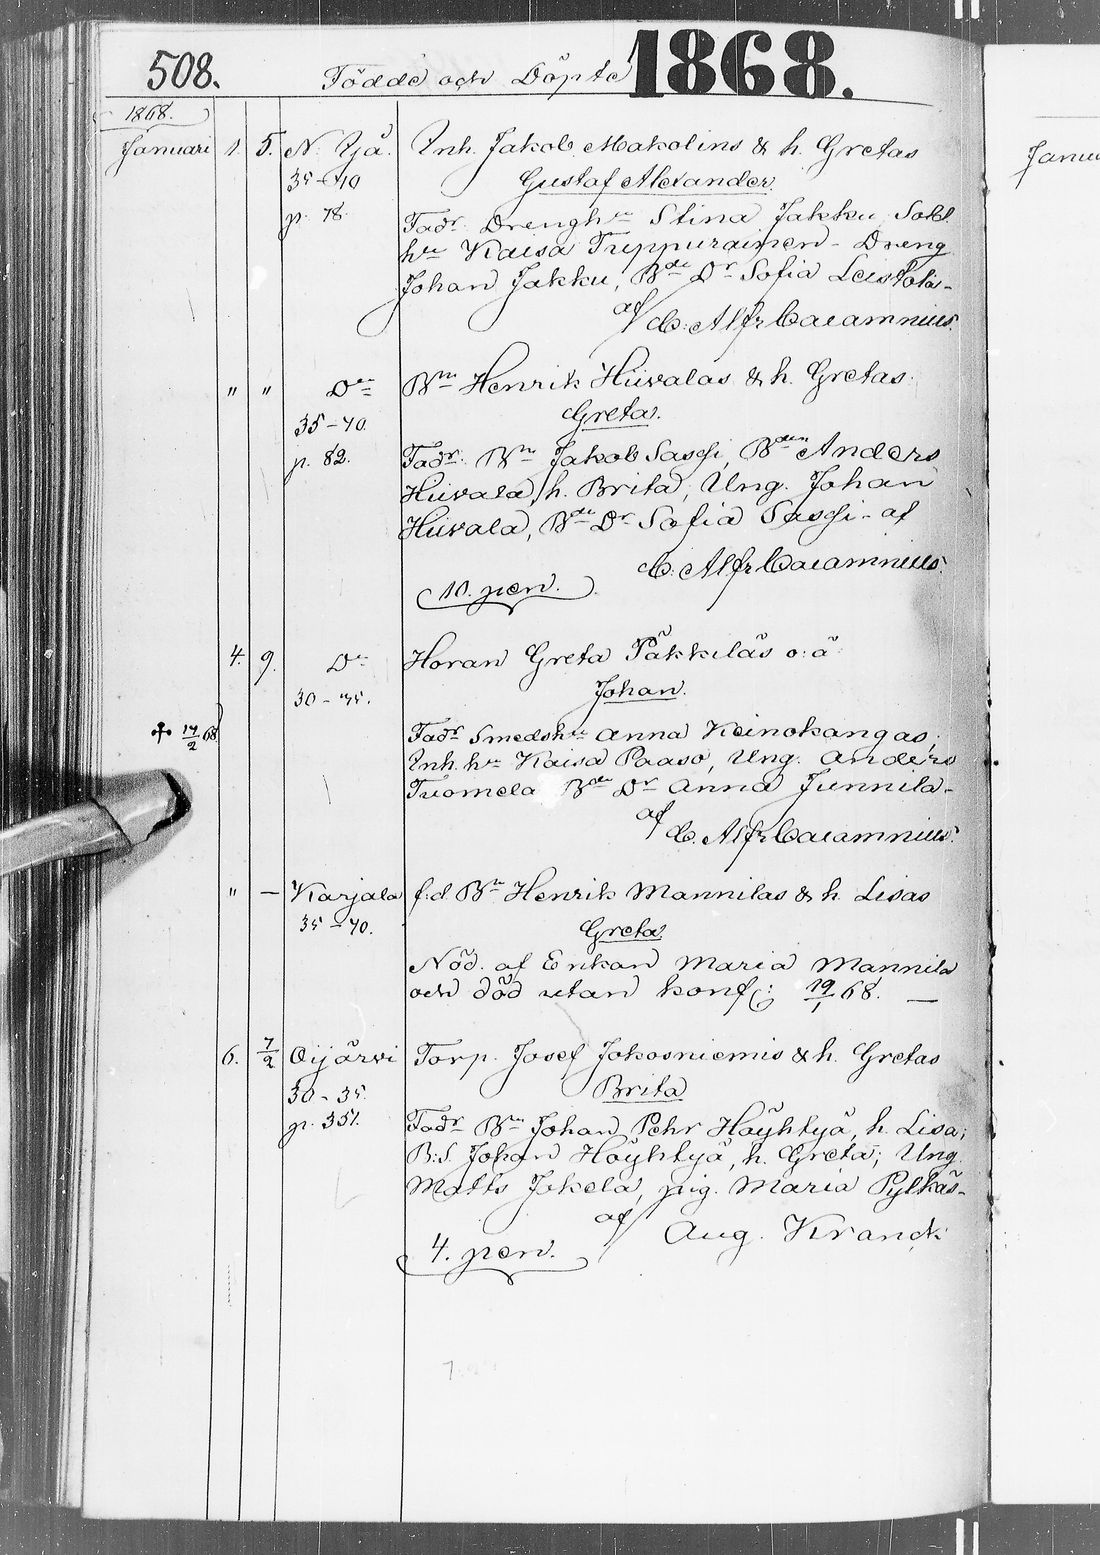 508. Födde och Döpte 1868.
1868.
Januari 1. 5. N. Ijå. Inh. Jakob Makolins & h. Gretas
35-40 Gustaf Alexander.
p. 78. Fadr. Drengh:n Stina Jakku, Sold.
h:n Kaisa Treppurainen - Dreng
Johan Jakku, Bde Dr Sofia Leistola -
af C. Alfr Calamnius.
" " Do Bn Henrik Hiivalas & h. Gretas.
35-40. Greta.
p. 82. Fadr: Bn Jakob Sassi, Bden Anders
Hiivala, h. Brita, Ung. Johan
Hiivala, Bde Dr Sofia Sassi - af
C. Alfr Calamnius.
10. pen.
4. 9. Do Horan Greta Päkkiläs o: ä
30-35. Johan.
Fadr Smedsh:n Anna Keinokangas,
✢ 14/2 68 Inh. h:n Kaisa Paaso, Ung. Anders
Tuomela Bde Dr Anna Junnila -
af C. Alfr Calamnius.
" - Karjala f.d. Bn Henrik Mannilas & h. Lisas
35-40. Greta.
Nöd. af Enkan Maria Mannila
och död utan konf: 19/1 68. -
6. 7/2 Oijärvi Torp. Josef Jokosniemis & h. Gretas
30-35. Brita
p. 351. Fadr Bn Johan Pehr Höyhtyä, h. Lisa;
B:S. Johan Höyhtyä, h. Greta; Ung.
Matts Jokela, pig. Maria Pylkäs -
af Aug. Kranck
4. pen.
Janu